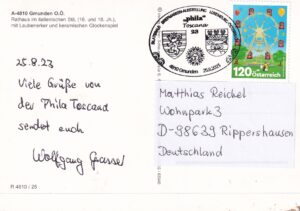 A-4810 Gmunden O.Ö.
Rathaus im italienischen Stil, (16. und 18. Jh.),
mit Laubenerker und keramischem Glockenspiel
25.8.23
Viele Grüße von
der Phila Toscana
sendet euch
Wolfgang Grassel
R 4810 / 25
"phila"
Toscana
23
4810 Gmunden
120 Österreich
Matthias Reichel
Wohnpark 3
D-98639 Rippershausen
Deutschland